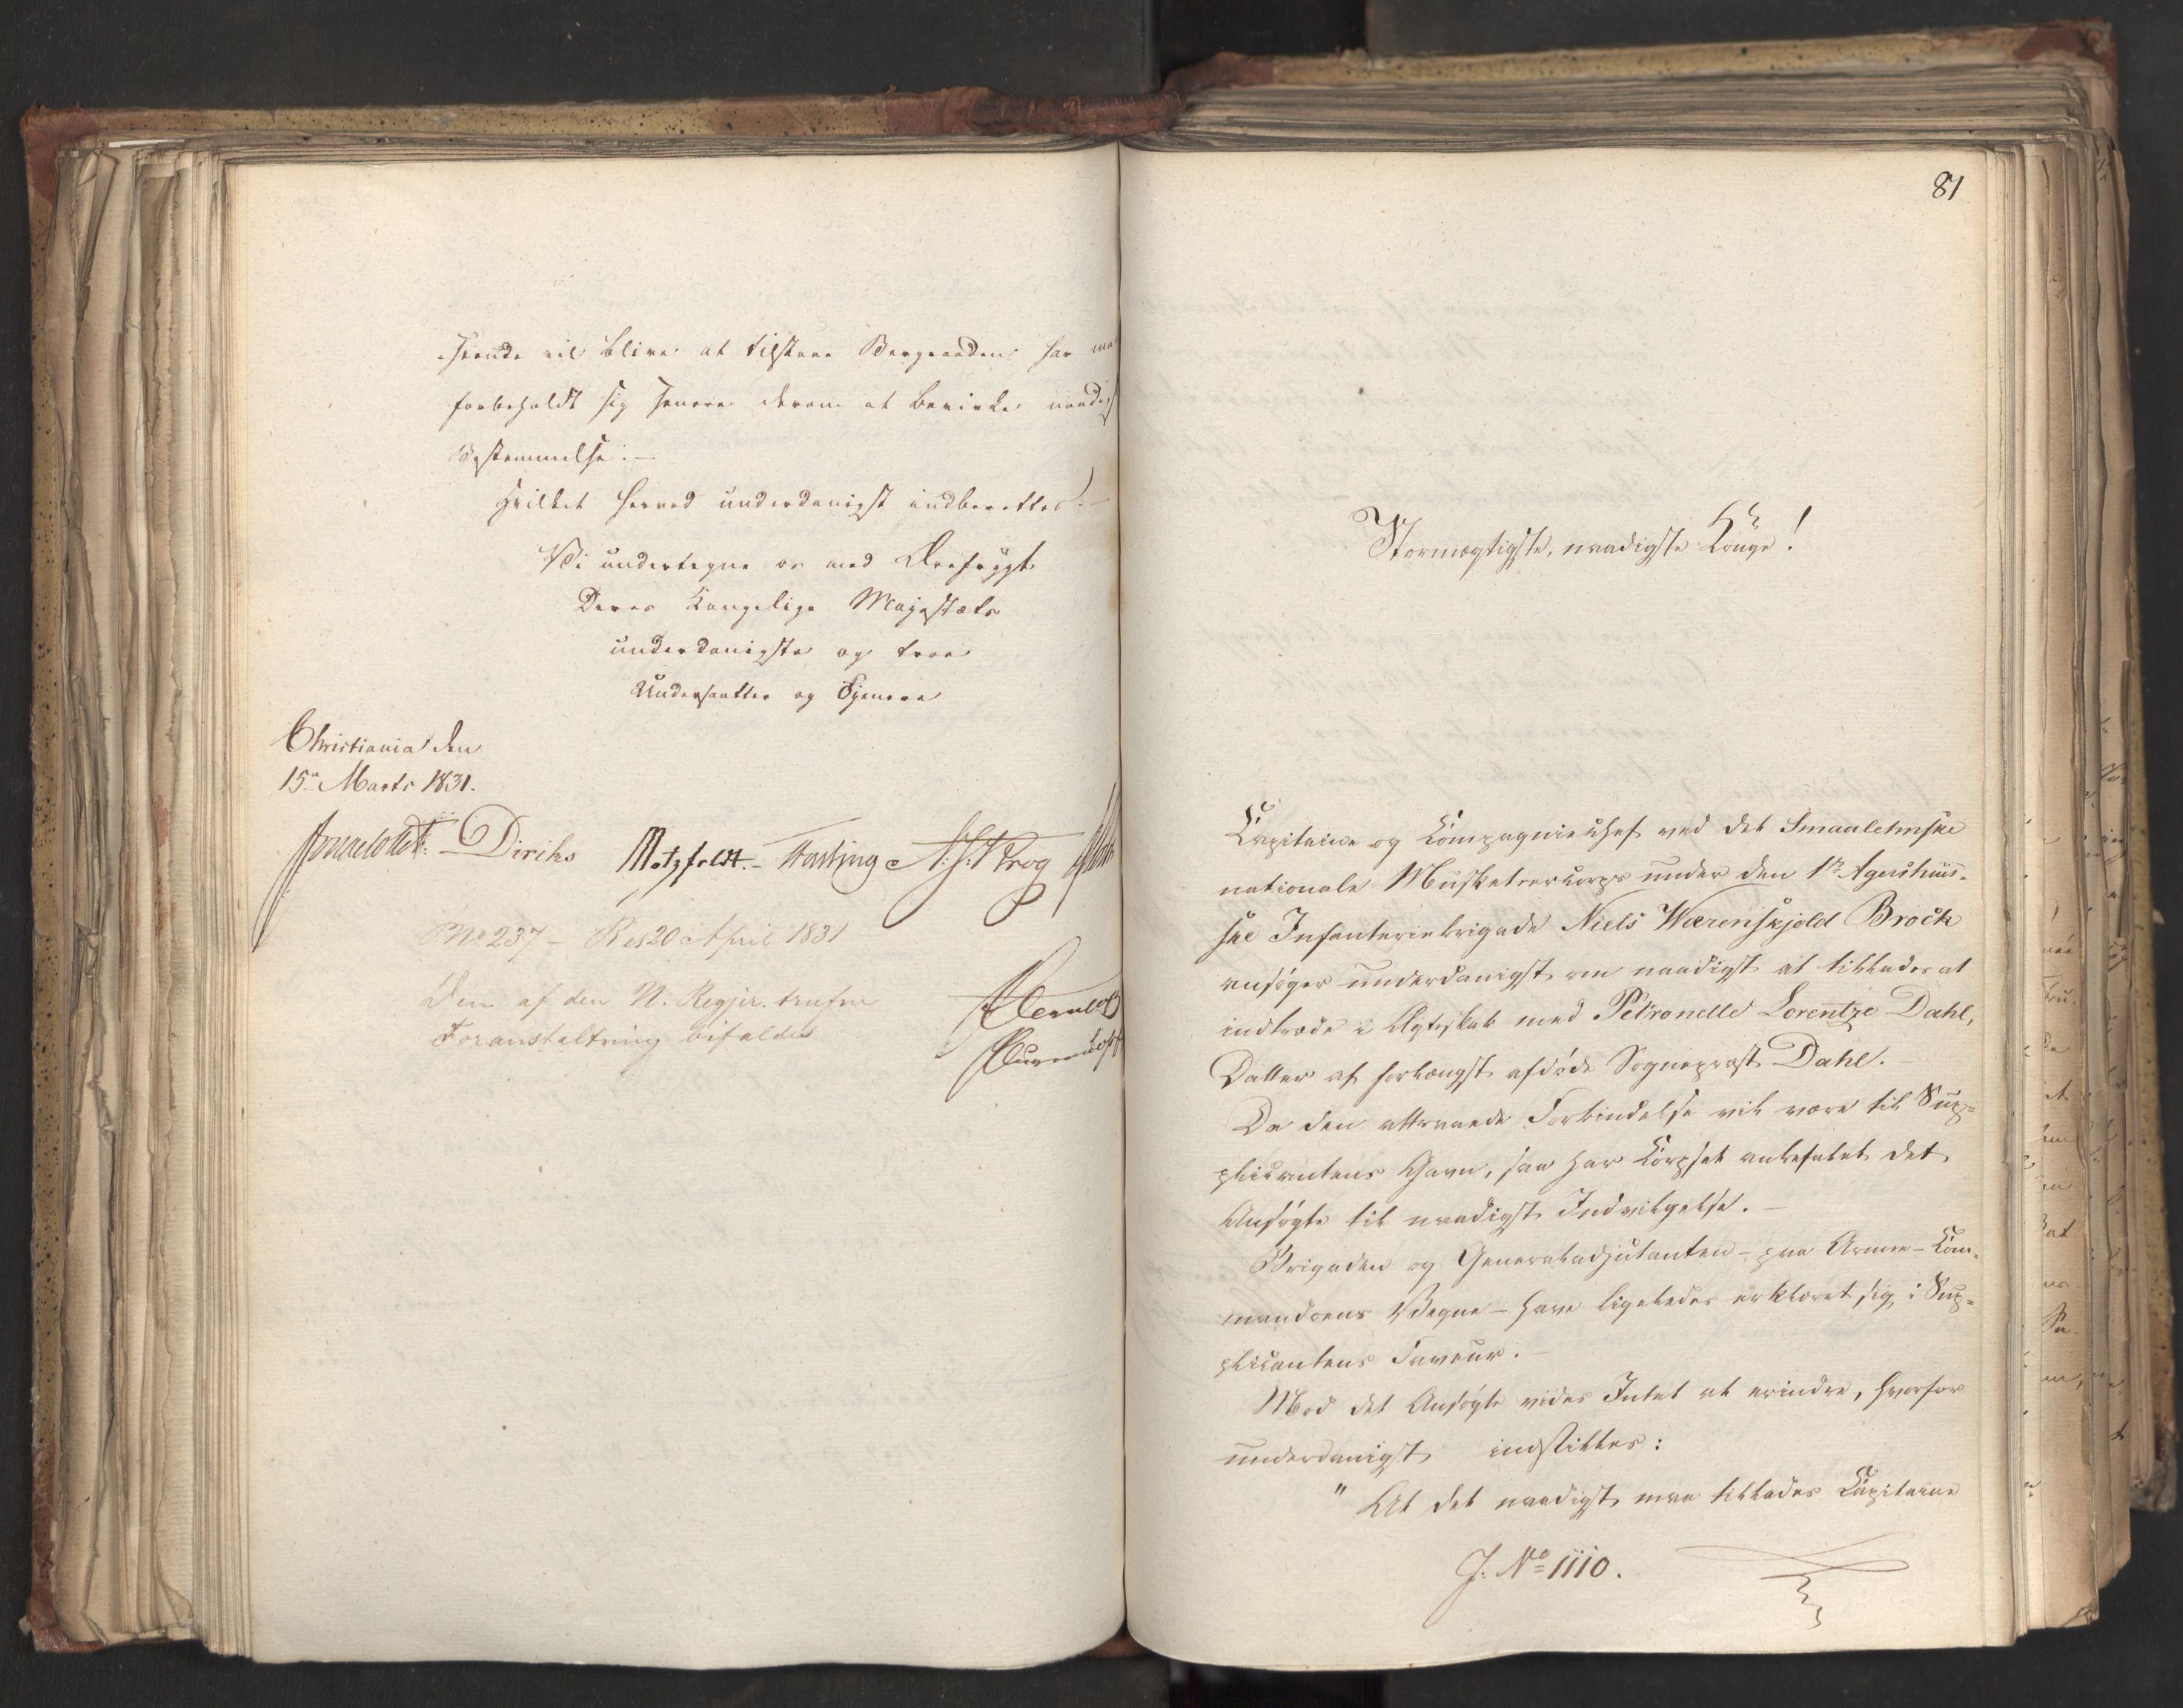 seende vil blive at tilstaae Vergeraaden har man
forbeholdt sig senere derom at bevirke naadigst
Bestemmelse. –
Hvilket herved underdanigst indberettes. –
Vi undertegne os med Ærefrygt
Deres Kongelige Majestæts
underdanigste og troe
Undersaatter og Tjenere
Christiania den
15de Marts 1831.
Diriks Motzfeldt. – Fasting H: J: Krog
No 237 – Res 20 April 1831
Den af den N. Regjer. trufne
Foranstaltning bifaldes
81
Stormægtigste, naadigste Konge!
Capitaine og Compagniechef ved det Smaalehnske
nationale Musketeercorps under den 1te Agershuus-
ske Infanteriebrigade Niels Wærenskjold Broch
ansøger underdanigst om naadigst at tillades at
indtræde i Ægteskab med Petronelle Lorentze Dahl,
Datter af forlængst afdøde Sognepræst Dahl. –
Da den attraaede Forbindelse vil være til Sup-
plicantens Gavn, saa har Corpset anbefalet det
Ansøgte til naadigst Indvilgelse. –
Brigaden og Generaladjutanten – paa Armee-Com-
mandoens Vegne – have ligeledes erklæret sig i Sup-
plicantens Faveur. –
Mod det Ansøgte vides Intet at erindre, hvorfor
underdanigst indstilles:
" At det naadigst maa tillades Capitaine
J: No 1110.